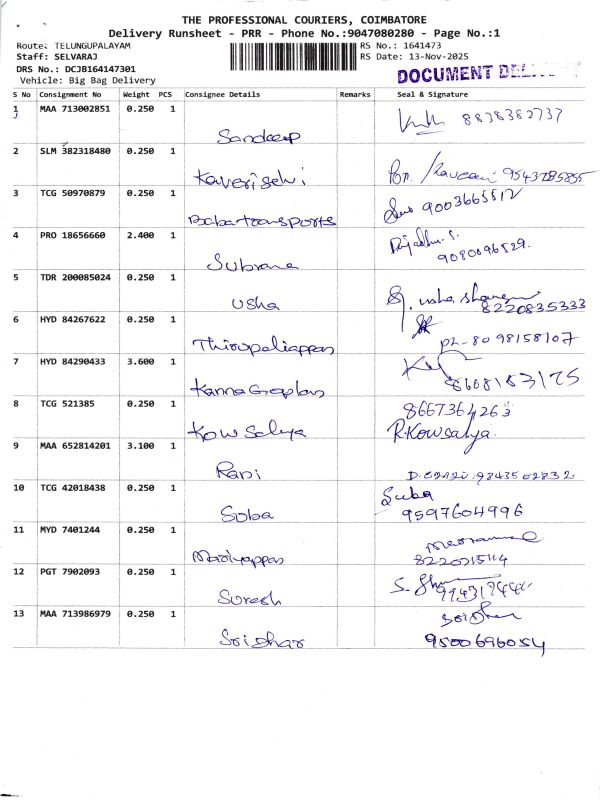 THE PROFESSIONAL COURIERS, COIMBATORE
Delivery Runsheet - PRR - Phone No.:9047080280 - Page No.:1
Route: TELUNGUPALAYAM
RS No.: 1641473
Staff: SELVARAJ
RS Date: 13-Nov-2025
DRS No.: DCJB164147301
Vehicle: Big Bag Delivery
DOCUMENT
S No Consignment No Weight PCS Consignee Details Remarks Seal & Signature
1 MAA 713002851 0.250 1
8838382737
Sandeep
2 SLM 382318480 0.250 1
Kaveriselvi
9543785855
3 TCG 50970879 0.250 1
9003665512
Baba transports
4 PRO 18656660 2.400 1
Subrana
9080096529.
5 TDR 200085024 0.250 1
usha
8220835333
6 HYD 84267622 0.250 1
Thirupaliappan
ph-8098158107
7 HYD 84290433 3.600 1
8608183175
8 TCG 521385 0.250 1
8667364263
Kowsalya
R.Kowsalya.
9 MAA 652814201 3.100 1
Rani
9843502832
10 TCG 42018438 0.250 1
Suba
Soba
9597604996
11 MYD 7401244 0.250 1
Mariyappan
12 PGT 7902093 0.250 1
Suresh
13 MAA 713986979 0.250 1
Sridhar
9500696054